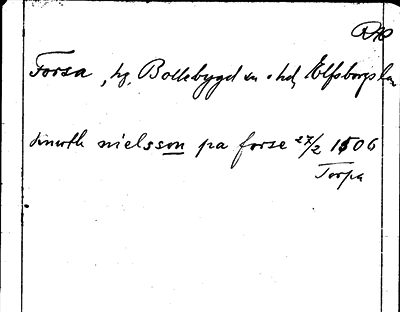 RAp
Forsa, hg, Bollebygd sn o hd, Elfsborgs län
sinerth nielsson pa forse 27/2 1506
Torpa